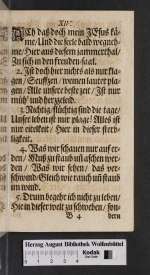 XII.
ACh daß doch mein JEsus kä-
me/ Und die seele bald wegneh-
me/ Hier aus diesem jammerthal/
Zu sich in den freuden-saal.
2. Ist doch hier nichts als nur kla-
gen/ Seufftzen/ weinen lauter pla-
gen/ Alle unsre beste zeit/ Ist nur
müh' und hertzeleid.
3. Nichtig/ flüchtig sind die tage/
Unser leben ist nur plage/ Alles ist
nur eitelkeit/ Hier in dieser sterb-
ligkeit.
4. Was wir schauen nur auf er-
den/ Muß zu staub und aschen wer-
den/ Was wir sehen/ das ver-
schwindt/ Gleich wie rauch und staub
im wind.
5. Drum begehr ich nicht zu leben/
Hier in dieser welt zu schweben/ son-
B 4 dern
Herzog August Bibliothek Wolfenbüttel
Kodak